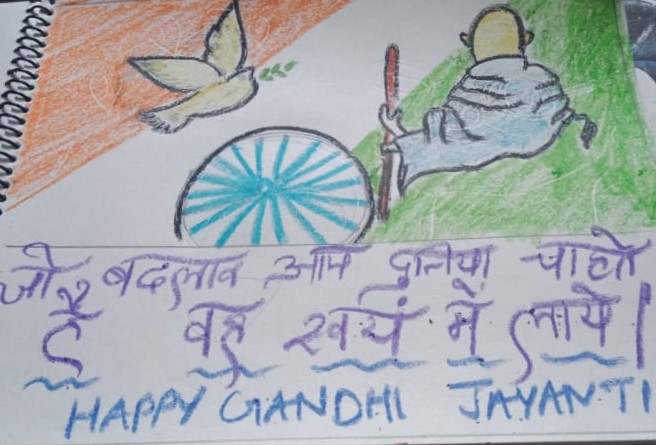 जो बदलाव आप दुनिया चाहते
है वह स्वयं में लाये।
HAPPY GANDHI JAYANTI